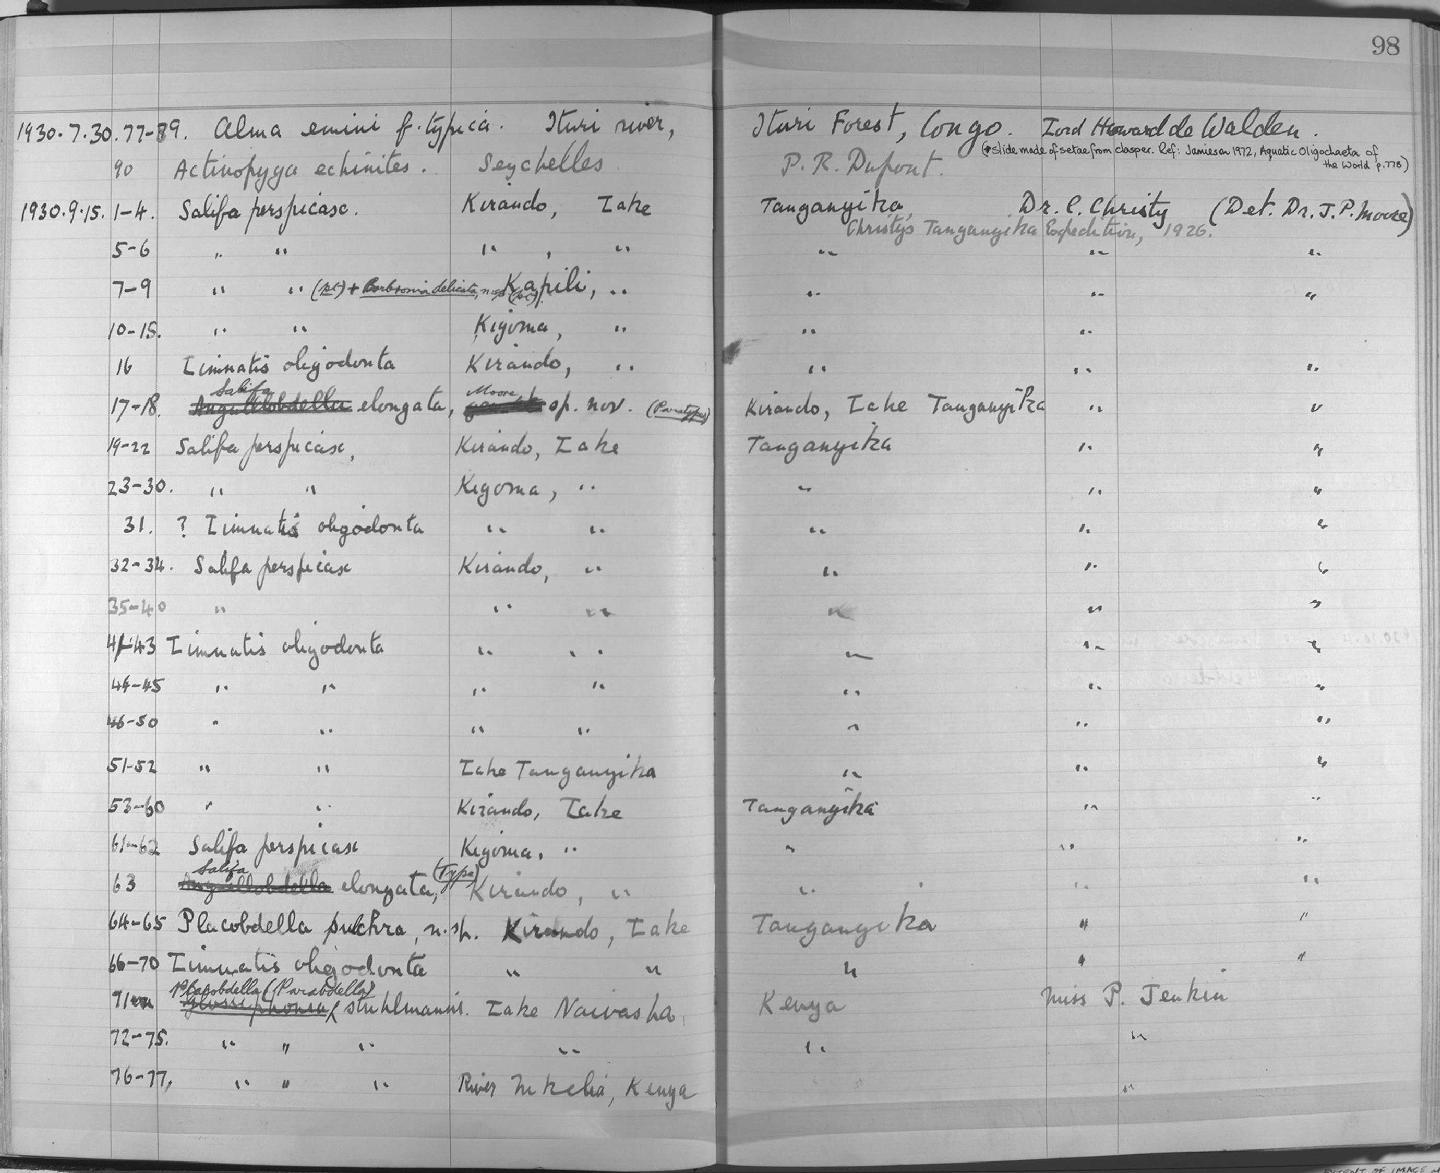 98
1930.7.30.77-89. Alma emini f. typica. Ituri river, Ituri Forest, Congo. Lord Howard de Walden.
(*Slide made of setae from clasper. Ref: Jamieson 1972, Aquatic Oligochaeta of
the World p.778)
90 Actinopyga echinites. Seychelles P. R. Dupont.
1930.9.15. 1-4. Salifa perspicax. Kirando, Lake Tanganyika, Dr. C. Christy (Det. Dr. J. P. Moore)
Christy's Tanganyika Expedition, 1926.
5-6 " " " , " " " "
7-9 " " (pt) + Barbronia delicata, n.sp (pt). Kapili, " " " "
10-15. " " Kigoma, " " "
16 Limnatis oligodonta Kirando, " " " "
Salifa Moore
17-18. Anguillobdella elongata, sp. nov. (Paratypes) Kirando, Lake Tanganyika " "
19-22 Salifa perspicax, Kirando, Lake Tanganyika " "
23-30. " " Kigoma, " " " "
31. ? Limnatis oligodonta " " " " "
32-34. Salifa perspicax Kirando, " " " "
35-40 " " " " " "
41-43 Limnatis oligodonta " " " " "
44-45 " " " " " " "
46-50 " " " " " " "
51-52 " " Lake Tanganyika " " "
53-60 " " Kirando, Lake Tanganyika " "
61-62 Salifa perspicax Kigoma, " " " "
Salifa
63 Anguillobdella elongata, (Type) Kirando, " " " "
64-65 Placobdella pulchra, n.sp. Kirando, Lake Tanganyika " "
66-70 Limnatis oligodonta " " " " "
Placobdella (Parabdella)
71 Glossiphonia stuhlmanni. Lake Naivasha, Kenya Miss P. Jenkin
72-75. " " " " " "
76-77, " " " River Mkelia, Kenya "